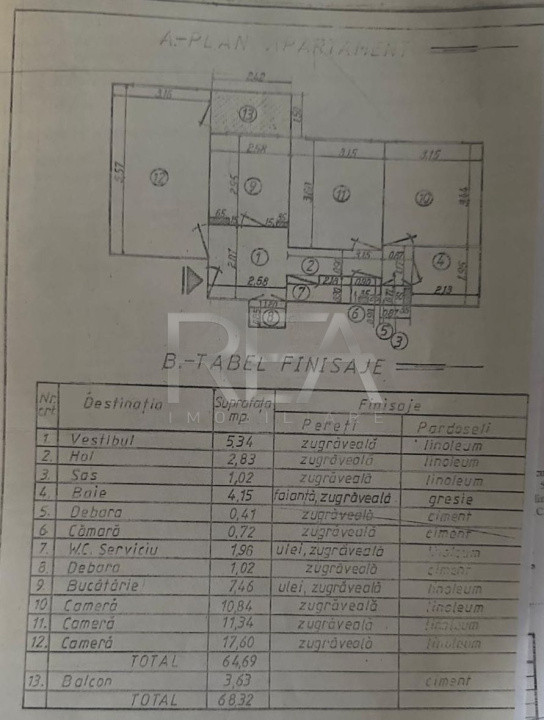 A.-PLAN APARTAMENT
2.42
3.16
13
1.50
2.58
3.15
3.15
5.57
12
2.95
9
3.60
11
10
3.44
1
2
4
2.07
2.58
7
2.13
1.95
8
6
5
3
REA
IMOBILIARE
B.-TABEL FINISAJE
Nr. crt. Destinația Suprafața mp. Finisaje
Pereți Pardoseli
1. Vestibul 5,34 zugrăveală linoleum
2. Hol 2,83 zugrăveală linoleum
3. Sas 1,02 zugrăveală linoleum
4. Baie 4,15 faianță, zugrăveală gresie
5. Debara 0,41 zugrăveală ciment
6. Cămară 0,72 zugrăveală ciment
7. W.C. Serviciu 1,96 ulei, zugrăveală linoleum
8. Debara 1,02 zugrăveală ciment
9. Bucătărie 7,46 ulei, zugrăveală linoleum
10 Cameră 10,84 zugrăveală linoleum
11. Cameră 11,34 zugrăveală linoleum
12. Cameră 17,60 zugrăveală linoleum
TOTAL 64,69
13. Balcon 3,63 ciment
TOTAL 68,32